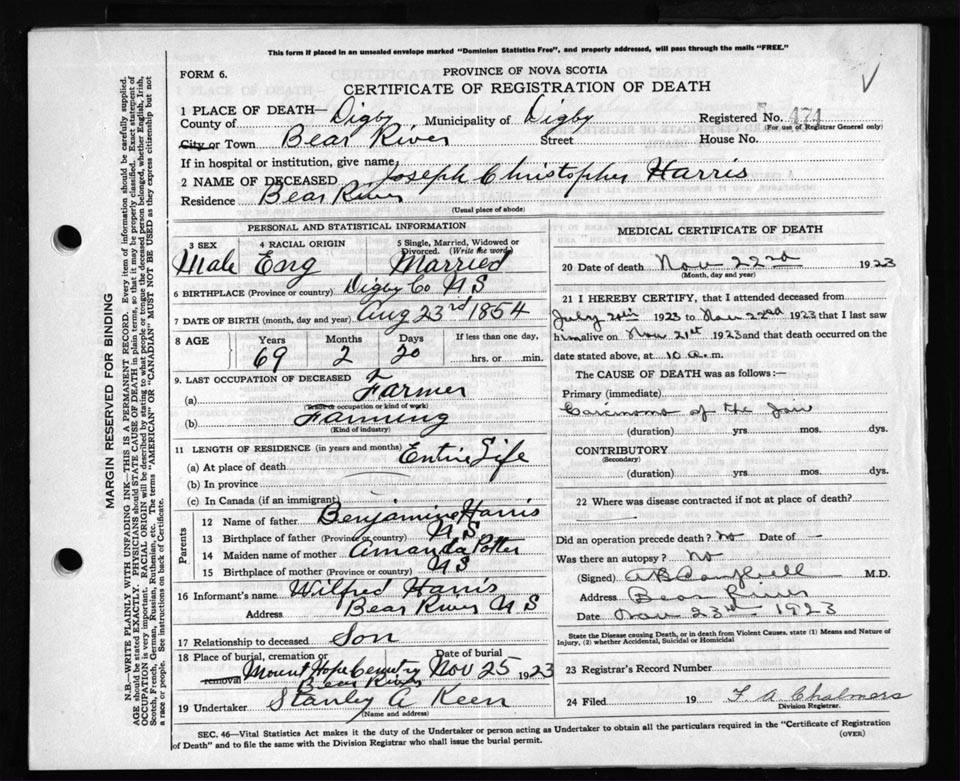 This form if placed in an unsealed envelope marked "Dominion Statistics Free", and properly addressed, will pass through the mails "FREE."
FORM 6.
PROVINCE OF NOVA SCOTIA
CERTIFICATE OF REGISTRATION OF DEATH
1 PLACE OF DEATH—
County of Digby Municipality of Digby Registered No. 474
(For use of Registrar General only)
City or Town Bear River Street House No.
If in hospital or institution, give name
2 NAME OF DECEASED Joseph Christopher Harris
Residence Bear River
(Usual place of abode)
PERSONAL AND STATISTICAL INFORMATION
3 SEX 4 RACIAL ORIGIN 5 Single, Married, Widowed or Divorced. (Write the word)
Male Eng Married
6 BIRTHPLACE (Province or country) Digby Co N S
7 DATE OF BIRTH (month, day and year) Aug 23rd 1854
8 AGE Years Months Days If less than one day,
69 2 20 hrs. or min.
9. LAST OCCUPATION OF DECEASED
(a) Farmer
(Trade or occupation or kind of work)
(b) Farming
(Kind of industry)
11 LENGTH OF RESIDENCE (in years and months)
(a) At place of death Entire Life
(b) In province
(c) In Canada (if an immigrant)
Parents
12 Name of father Benjamine Harris
13 Birthplace of father (Province or country) N S
14 Maiden name of mother Amanda Potter
15 Birthplace of mother (Province or country) N S
16 Informant's name Wilfred Harris
Address Bear River N S
17 Relationship to deceased Son
18 Place of burial, cremation or removal Date of burial
Mount Hope Cemetry Nov 25 1923
Bear River
19 Undertaker Stanly A Keen
(Name and address)
MEDICAL CERTIFICATE OF DEATH
20 Date of death Nov 22nd 1923
(Month, day and year)
21 I HEREBY CERTIFY, that I attended deceased from
July 1923 to Nov 22nd 1923 that I last saw
him alive on Nov 21st 1923 and that death occurred on
date stated above, at 10 a.m.
The CAUSE OF DEATH was as follows:—
Primary (immediate)
Carcinoma of the Jaw
(duration) yrs. mos. dys.
CONTRIBUTORY
(Secondary)
(duration) yrs. mos. dys.
22 Where was disease contracted if not at place of death?
Did an operation precede death? No Date of —
Was there an autopsy? No
(Signed) A B Campbell M.D.
Address Bear River
Date Nov 23rd 1923
State the Disease causing Death, or in death from Violent Causes, state (1) Means and Nature of
Injury, (2) whether Accidental, Suicidal or Homicidal
23 Registrar's Record Number
24 Filed 19 F. A Chalmers
Division Registrar.
SEC. 46—Vital Statistics Act makes it the duty of the Undertaker or person acting as Undertaker to obtain all the particulars required in the "Certificate of Registration
of Death" and to file the same with the Division Registrar who shall issue the burial permit.
(OVER)
MARGIN RESERVED FOR BINDING
N.B.—WRITE PLAINLY WITH UNFADING INK—THIS IS A PERMANENT RECORD. Every item of information should be carefully supplied.
AGE should be stated EXACTLY. PHYSICIANS should STATE CAUSE OF DEATH in plain terms, so that it may be properly classified. Exact statement of
OCCUPATION is very important. RACIAL ORIGIN will be described by stating to what people or tongue the deceased person belonged, whether English, Irish,
Scotch, French, German, Russian, Ruthenian, etc. The terms "AMERICAN" or "CANADIAN" MUST NOT BE USED as they express citizenship but not
a race or people. See instructions on back of Certificate.